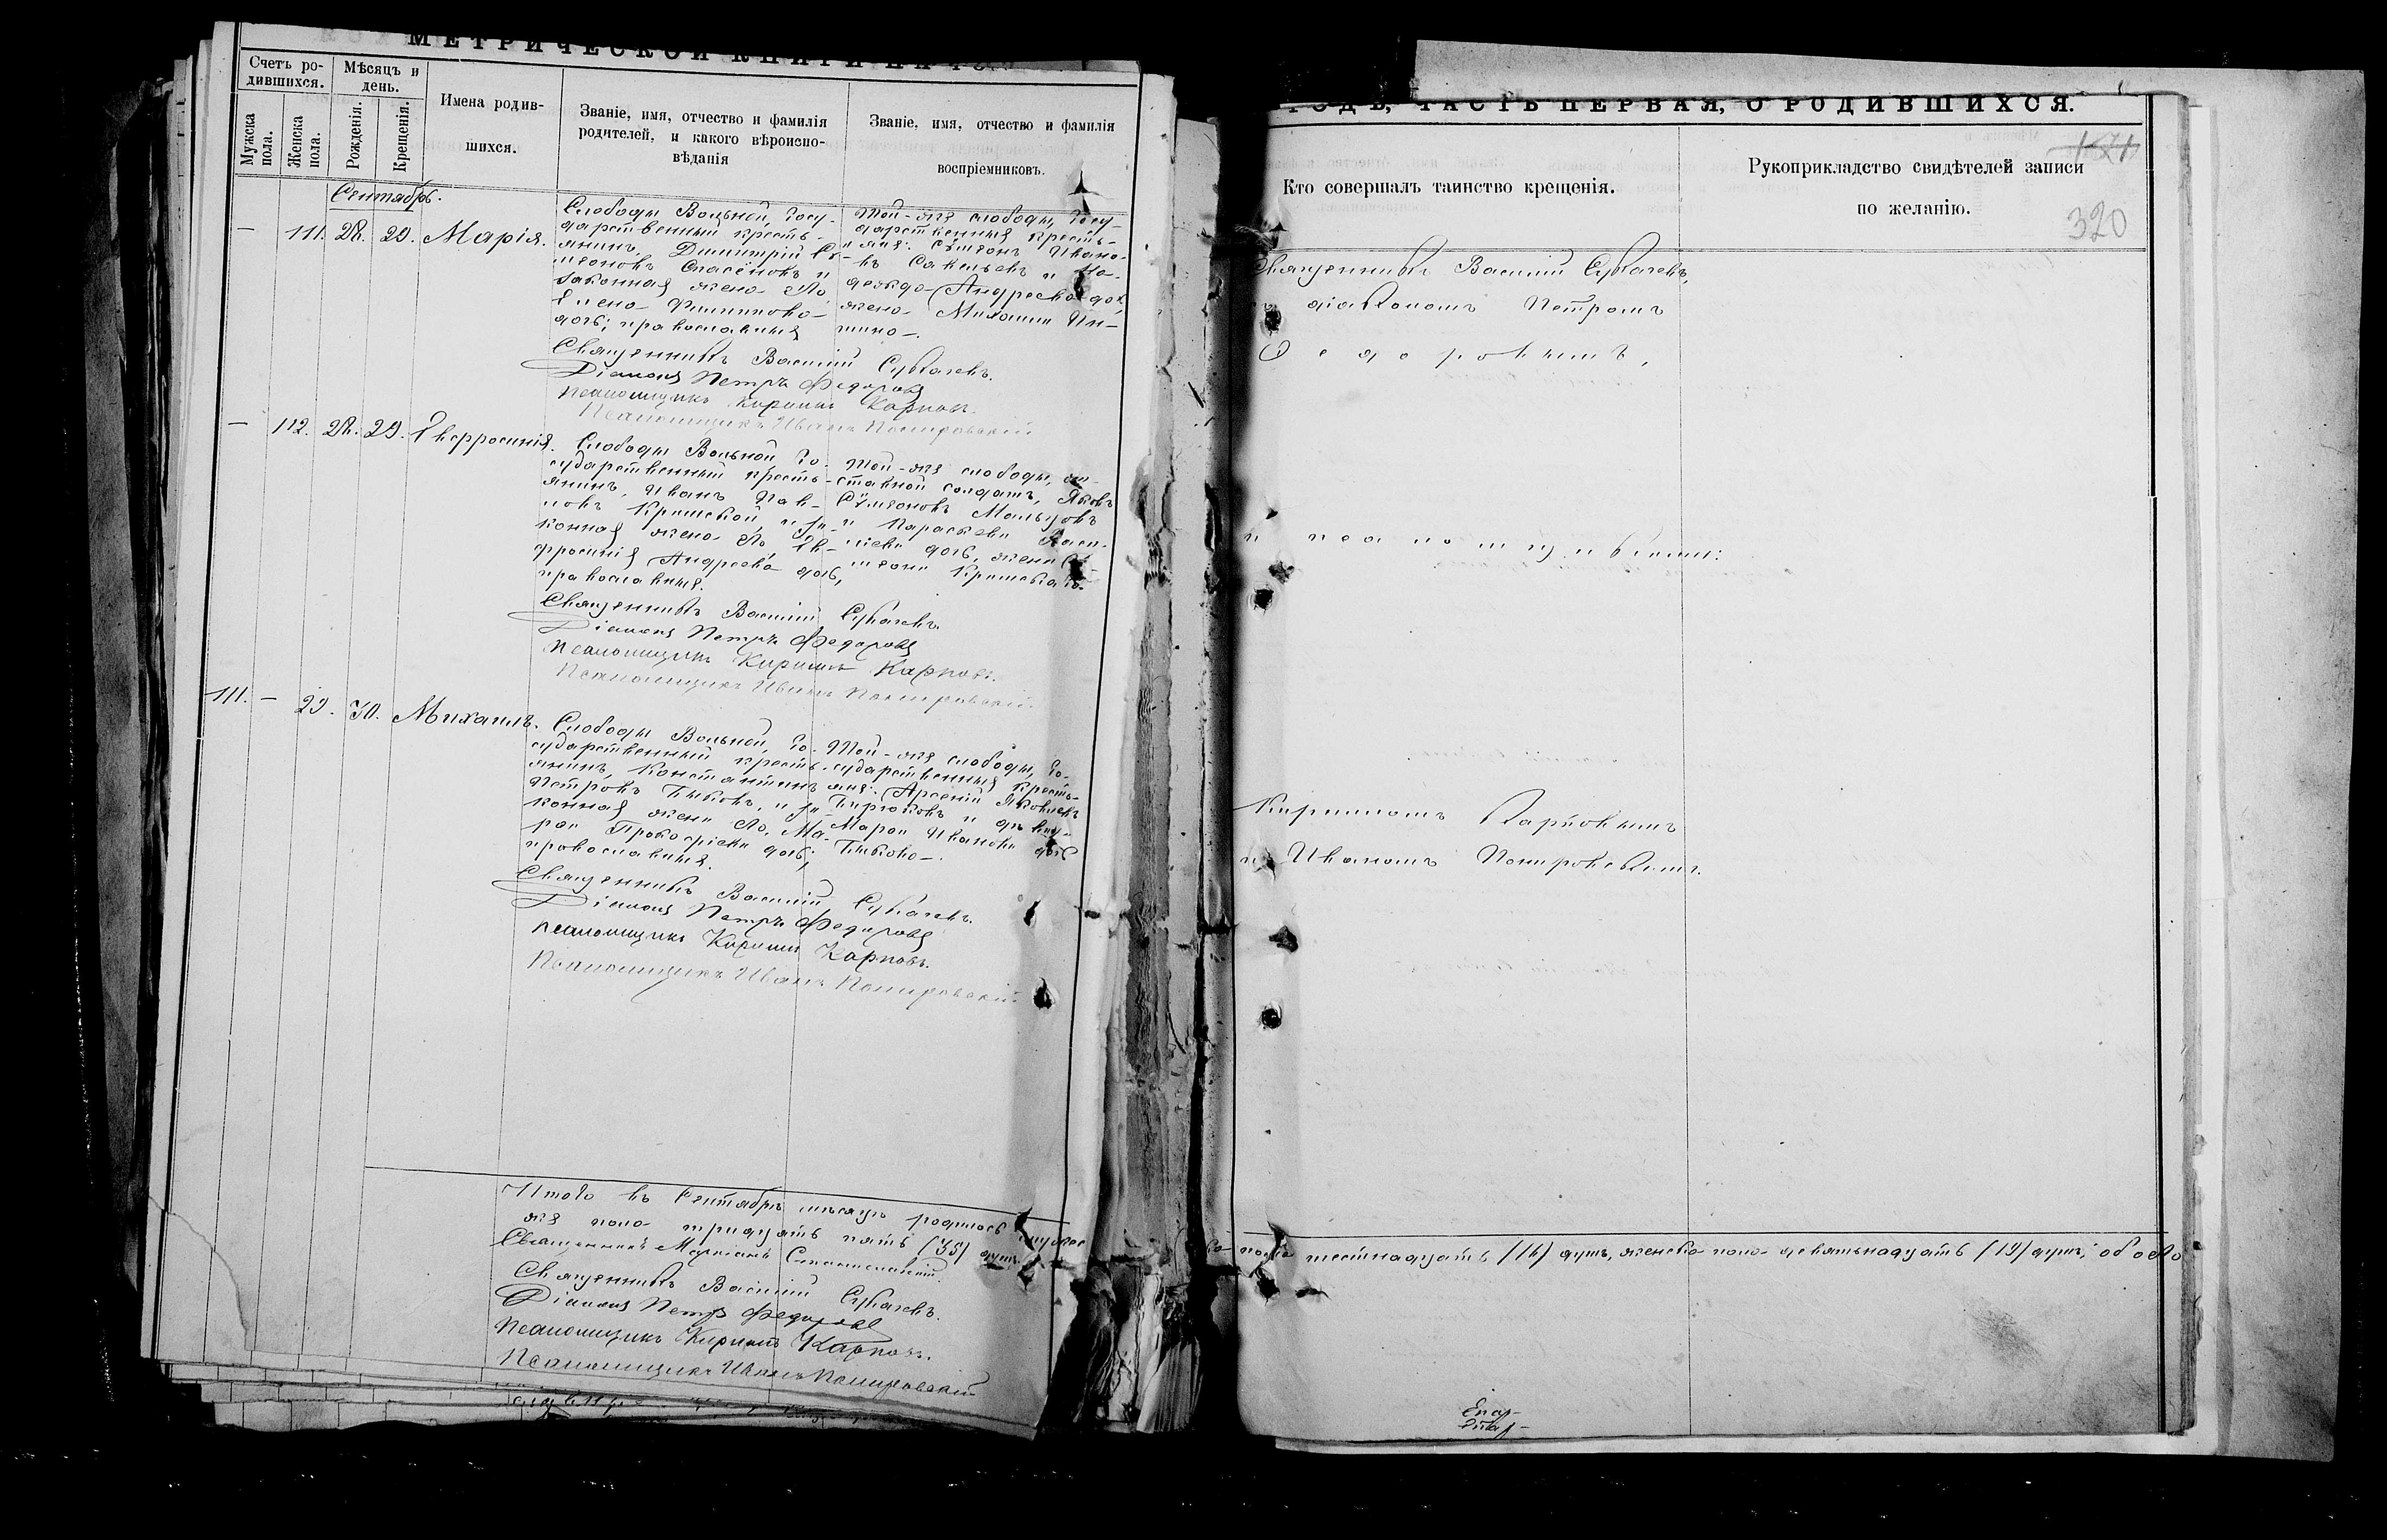 МЕТРИЧЕСКОЙ КНИГИ НА
Счетъ ро-
дившихся.
Мѣсяцъ и
день.
Мужска
пола.
Женска
пола.
Рожденія.
Крещенія.
Имена родив-
шихся.
Званіе, имя, отчество и фамилія
родителей, и какого вѣроиспо-
вѣданія
Званіе, имя, отчество и фамилія
воспріемниковъ.
Сентябрь.
— 111. 28. 29. Марія.
Слободы Вольной, госу-
дарственный кресть-
янинъ, Димитрій
и
законная жена его
Елена Филиппова
дочь; православныя
Той-же слободы, госу-
дарственныя кресть-
яне: Сѵмеонъ Ивано-
въ Савельевъ и На-
дежда Андреева дочь,
жена Михаила
Священникъ Василій Субачевъ.
Діаконъ Петръ Федоровъ
Псаломщикъ Кириллъ Карповъ.
Псаломщикъ Иванъ Покировский
— 112. 28. 29. Евфросинія.
Слободы Вольной, го-
сударственный кресть-
янинъ, Иванъ Пав-
ловъ Крымской, и за-
конная жена его, Ев-
фросинія Андреева дочь,
православныя.
Той-же слободы, от-
ставной солдатъ, Яковъ
Сѵмеоновъ Мальцовъ
и Параскева Васи-
ліева дочь, жена Сѵ-
меона Крымскаго.
Священникъ Василій Субачевъ.
Діаконъ Петръ Федоровъ
Псаломщикъ Кириллъ Карповъ.
Псаломщикъ Иванъ Покировский.
111. — 29. 30. Михаилъ.
Слободы Вольной, го-
сударственный кресть-
янинъ, Константинъ
Петровъ Быковъ, и за-
конная жена его, Ма-
ра Прокофіева дочь;
православныя.
Той-же слободы, го-
сударственныя кресть-
яне: Арсеній Яковлевъ
Бирюковъ и
Мара Иванова дочь
Быкова.
Священникъ Василій Субачевъ.
Діаконъ Петръ Федоровъ
Псаломщикъ Кириллъ Карповъ.
Псаломщикъ Иванъ Покировский.
Итого въ Сентябрѣ мѣсяцѣ родилось мужес-
же пола тридцать пять (35) душъ.
Священникъ
Священникъ Василій Субачевъ.
Діаконъ Петръ Федоровъ
Псаломщикъ Кириллъ Карповъ.
Псаломщикъ Иванъ Покировский
ГОДЪ, ЧАСТЬ ПЕРВАЯ, О РОДИВШИХСЯ.
Кто совершалъ таинство крещенія.
Рукоприкладство свидѣтелей записи
по желанію.
320
Священникъ Василій Субачевъ,
діакономъ Петромъ
Ѳедоровымъ,
и псаломщиками:
Кирилломъ Карповымъ
и Иваномъ Покировскимъ.
ка пола шестнадцать (16) душъ, женска пола девятьнадцать (19) душъ; обоего